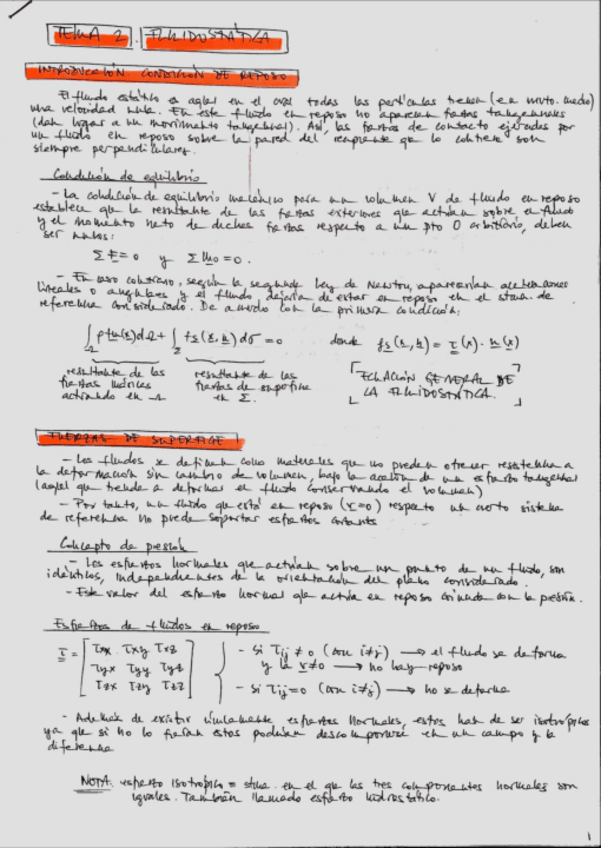 TEMA 2. FLUIDOSTÁTICA
INTRODUCCIÓN CONDICIÓN DE REPOSO
El fluido estático es aquel en el cual todas las partículas tienen (en mvto. medio)
una velocidad nula. En este fluido en reposo no aparecen fuerzas tangenciales
(dan lugar a un movimiento tangencial). Así, las fuerzas de contacto ejercidas por
un fluido en reposo sobre la pared del recipiente que lo contiene son
siempre perpendiculares.
Condición de equilibrio
- La condición de equilibrio mecánico para un volumen V de fluido en reposo
establece que la resultante de las fuerzas exteriores que actúan sobre el fluido
y el momento neto de dichas fuerzas respecto a un pto O arbitrario, deben
ser nulos:
Σ F = 0 y Σ M₀ = 0.
- En caso contrario, según la segunda Ley de Newton, aparecerían aceleraciones
lineales o angulares y el fluido dejaría de estar en reposo en el stma. de
referencia considerado. De acuerdo con la primera condición:
∫Ω ρ fm(x) dΩ + ∫Σ fs(x, n) dσ = 0 donde fs(x, n) = τ(x) · n(x)
resultante de las fuerzas másicas actuando en Ω
resultante de las fuerzas de superficie en Σ.
[ECUACIÓN GENERAL DE LA FLUIDOSTÁTICA.]
FUERZAS DE SUPERFICIE
- Los fluidos se definen como materiales que no pueden ofrecer resistencia a
la deformación sin cambio de volumen, bajo la acción de un esfuerzo tangencial
(aquel que tiende a deformar el fluido conservando el volumen)
- Por tanto, un fluido que está en reposo (v=0) respecto un cierto sistema
de referencia no puede soportar esfuerzos cortantes
Concepto de presión
- Los esfuerzos normales que actúan sobre un punto de un fluido, son
idénticos, independientes de la orientación del plano considerado.
- Este valor del esfuerzo normal que actúa en reposo coincide con la presión.
Esfuerzos de fluidos en reposo
τ = [ τxx τxy τxz
τyx τyy τyz
τzx τzy τzz ]
- si τij ≠ 0 (con i≠j) → el fluido se deforma
y la v≠0 → no hay reposo
- si τij = 0 (con i≠j) → no se deforma
- Además de existir únicamente esfuerzos normales, estos han de ser isotrópicos
ya que si no lo fueran estos podrían descomponerse en un campo y la
diferencia
NOTA: esfuerzo isotrópico = stma. en el que las tres componentes normales son
iguales. También llamado esfuerzo hidrostático.
1